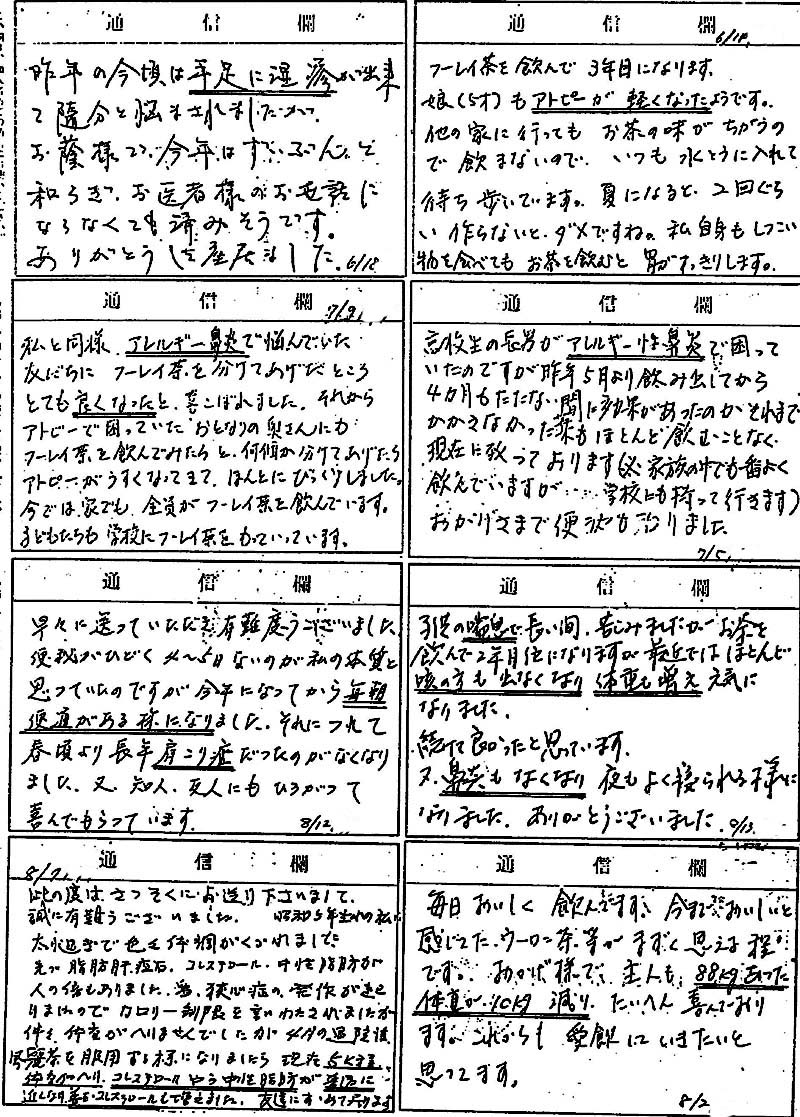 通信欄
昨年の今頃は手足に湿疹が出来
て随分と悩まされましたが、
お蔭様で、今年はずいぶんと
和らぎ、お医者様のお世話に
ならなくても済みそうです。
ありがとうございました。6/18
通信欄
6/18
フーレイ茶を飲んで3年目になります。
娘(5才)もアトピーが軽くなったようです。
他の家に行ってもお茶の味がちがうの
で飲まないので、いつも水とうに入れて
持ち歩いています。夏になると、2回ぐら
い作らないと、ダメですね。私自身もしつこい
物を食べてもお茶を飲むと胃がすっきりします。
通信欄
7/9
私と同様、アレルギー鼻炎で悩んでいた
友だちにフーレイ茶を分けてあげたところ
とても良くなったと、喜こばれました。それから
アトピーで困っていたおとなりの奥さんにも
フーレイ茶を飲んでみたらと、何個か分けてあげたら
アトピーがうすくなってきて、ほんとにびっくりしました。
今では家でも、全員がフーレイ茶を飲んでいます。
子どもたちも学校にフーレイ茶をもっていっています。
通信欄
高校生の長男がアレルギー性鼻炎で困って
いたのですが昨年5月より飲み出してから
4カ月もたたない間に効果があったのかそれまで
かかさなかった薬もほとんど飲むことなく
現在に致っております(又、家族の中でも一番よく
飲んでいますが…学校にも持って行きます)
おかげさまで便秘も治りました
7/5
通信欄
早々に送っていただき有難度うございました
便秘がひどく4〜5日ないのが私の体質と
思っていたのですが今年になってから毎朝
便通がある様になりました。それにつれて
春頃より長年肩こり症だったのがなくなり
ました。又、知人、友人にもひろがって
喜んでもらっています。
8/12
通信欄
子供の喘息で長い間、苦しみましたがお茶を
飲んで2年目位になりますが最近ではほとんど
咳の方も出なくなり体重も増え元気に
なりました。
続けて良かったと思っています。
又、鼻炎もなくなり夜もよく寝られる様に
なりました。ありがとうございました。
通信欄
8/7
此の度はさっそくにお送り下さいまして、
誠に有難うございました。昭和5年生れの私は
太り過ぎで色々体調がくずれまして
先づ脂肪肝、痘石、コレステロール、中性脂肪が
人の倍もありました。狭心症の発作が起こ
りましたのでカロリー制限を言いわたされましたが
体重がへりませんでしたが4月の退院後
風麗茶を服用する様になりましたら現在5キロ
体重がへり、コレステロール中性脂肪が普通に
近くなり善玉コレステロールも増えました。友達にすすめております
通信欄
毎日おいしく飲んでます。今までおいしいと
感じてたウーロン茶等がまずく思える程
です。おかげ様で、主人も、88kgあった
体重が10kg減り、たいへん喜んでおり
ます。これからも愛飲していきたいと
思ってます。
8/2